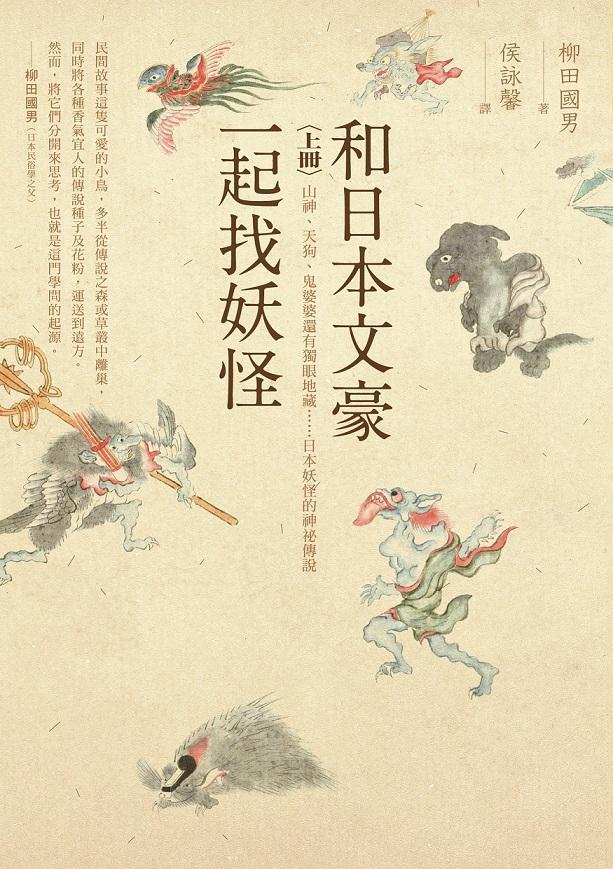 柳田國男 著
侯詠馨 譯
和日本文豪
一起找妖怪
〈上冊〉山神、天狗、鬼婆婆還有獨眼地藏……日本妖怪的神祕傳說
民間故事這隻可愛的小鳥，多半從傳說之森或草叢中離巢，
同時將各種香氣宜人的傳說種子及花粉，運送到遠方。
然而，將它們分開來思考，也就是這門學問的起源。
——柳田國男（日本民俗學之父）